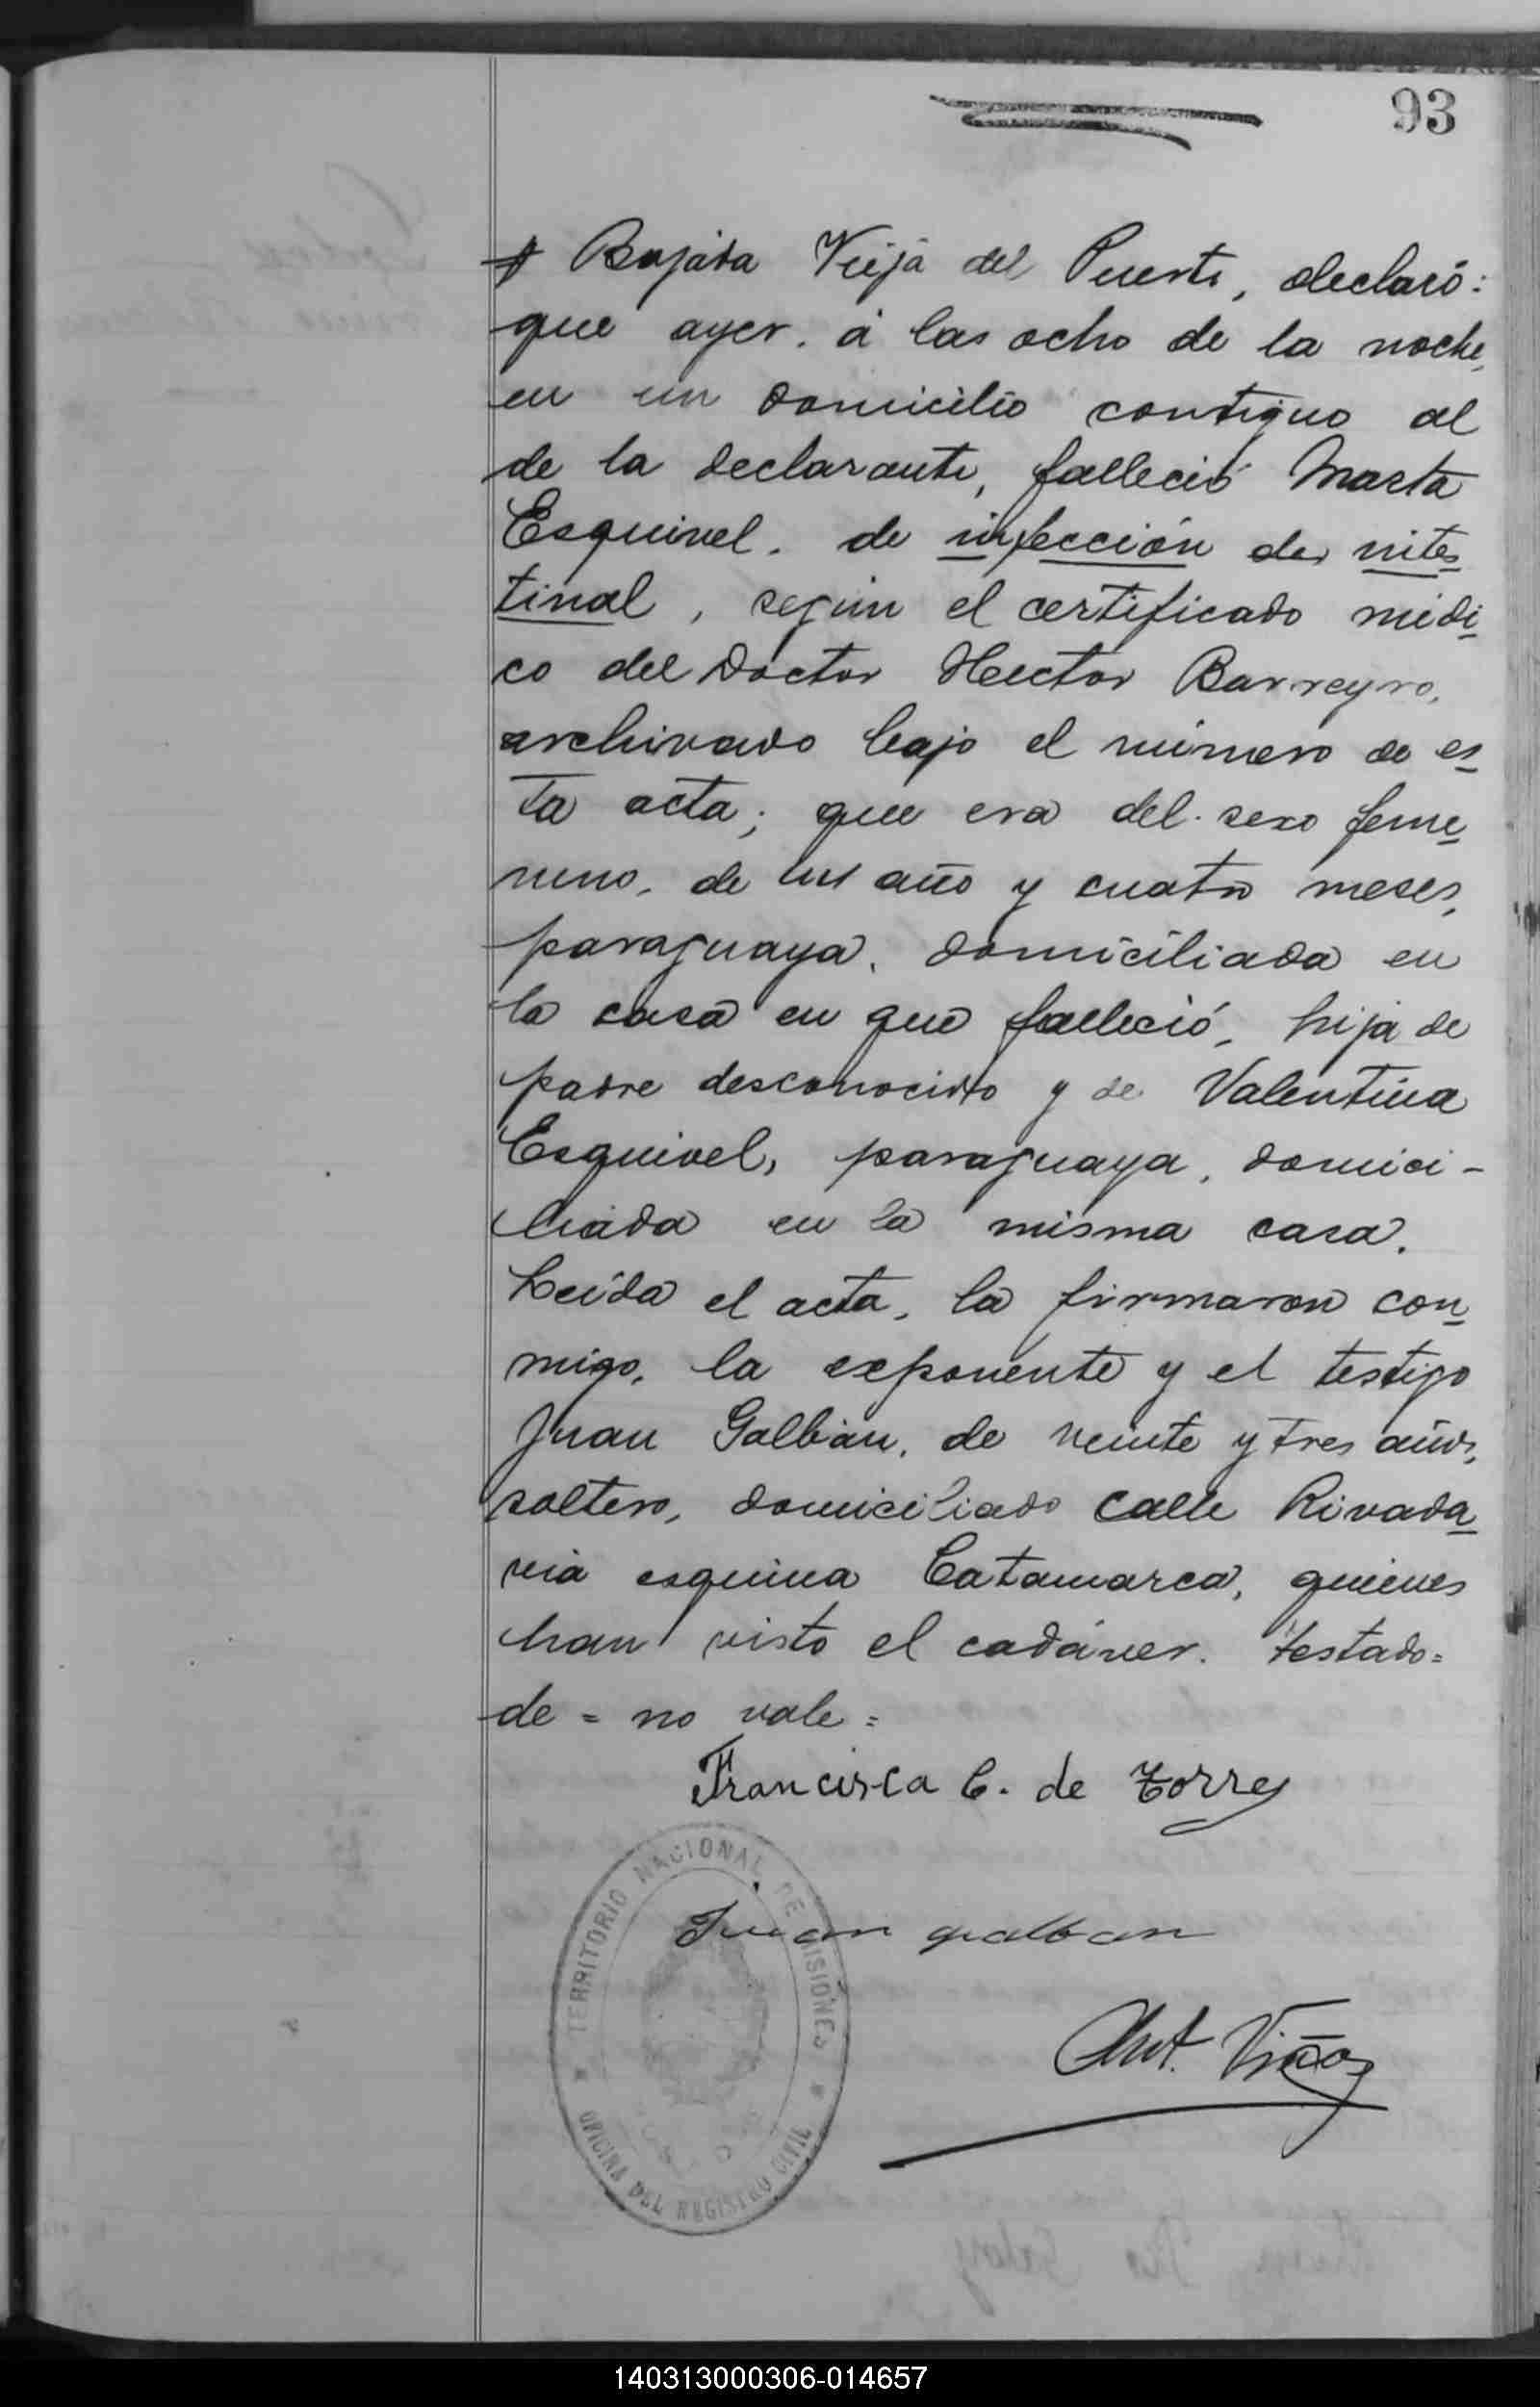 93
Bajada Vieja del Puerto, declaró:
que ayer, á las ocho de la noche,
en un domicilio contiguo al
de la declarante, falleció Marta
Esquivel, de infección de intes
tinal, según el certificado médi
co del Doctor Hector Barreyro,
archivado bajo el número de es
ta acta; que era del sexo feme
nino, de un año y cuatro meses,
paraguaya, domiciliada en
la casa en que falleció, hija de
padre desconocido y de Valentina
Esquivel, paraguaya, domici-
liada en la misma casa.
Leída el acta, la firmaron con
migo, la exponente y el testigo
Juan Galban, de veinte y tres años,
soltero, domiciliado calle Rivada
via esquina Catamarca, quienes
han visto el cadáver. Testado=
de = no vale =
Francisca C. de Torres
Juan galban
Ant. Viñas
TERRITORIO NACIONAL DE MISIONES
OFICINA DEL REGISTRO CIVIL
140313000306-014657